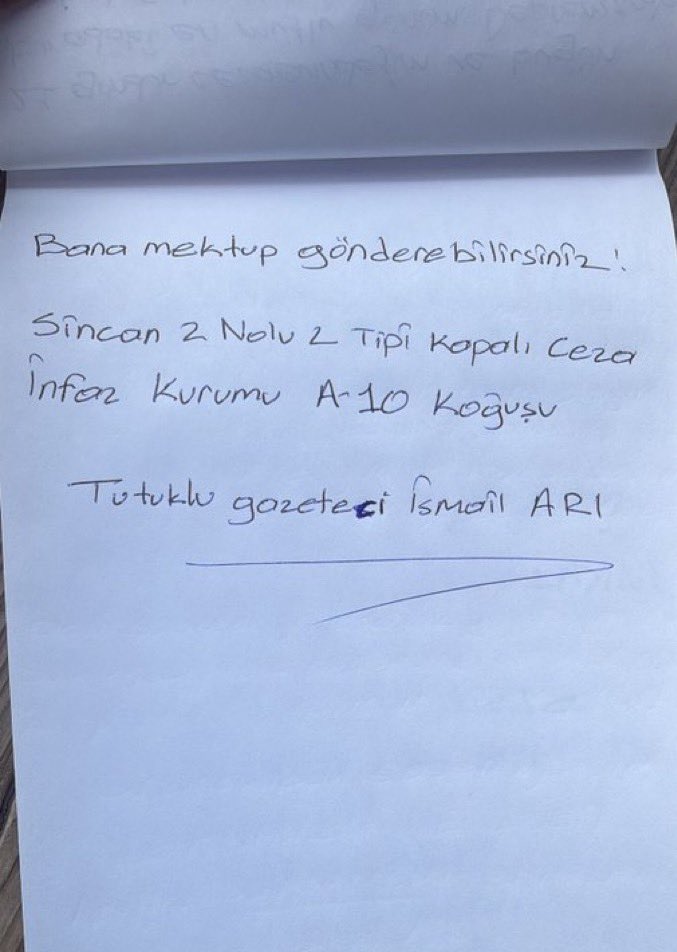 Bana mektup gönderebilirsiniz!
Sincan 2 Nolu 2 Tipi Kapalı Ceza
İnfaz Kurumu A-10 Koğuşu
Tutuklu gazeteci İsmail ARI